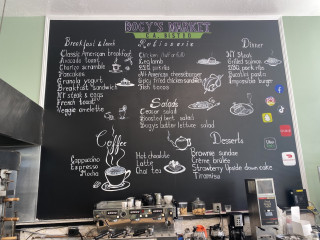 BOGY'S MARKET
CA. BISTRO
Breakfast & Lunch
Classic American breakfast
Avocado toast
Chorizo scramble
Pancakes
Granola yogurt
Breakfast sandwich
NY steak & eggs
French toast
Veggie omelette
Rotisserie
King lamb
BBQ
All American cheeseburger
Spicy fried chicken sandwich
Salads
Ceasar salad
Roasted beet salad
Bogys butter lettuce salad
Dinner
NY Steak
Grilled salmon
BBQ pork ribs
Bucatini pasta
Impossible burger
Coffee
Cappuccino
Espresso
Mocha
Hot chocolate
Latte
Chai tea
Desserts
Brownie sundae
Crème brulée
Strawberry Upside down cake
Tiramisu
Uber